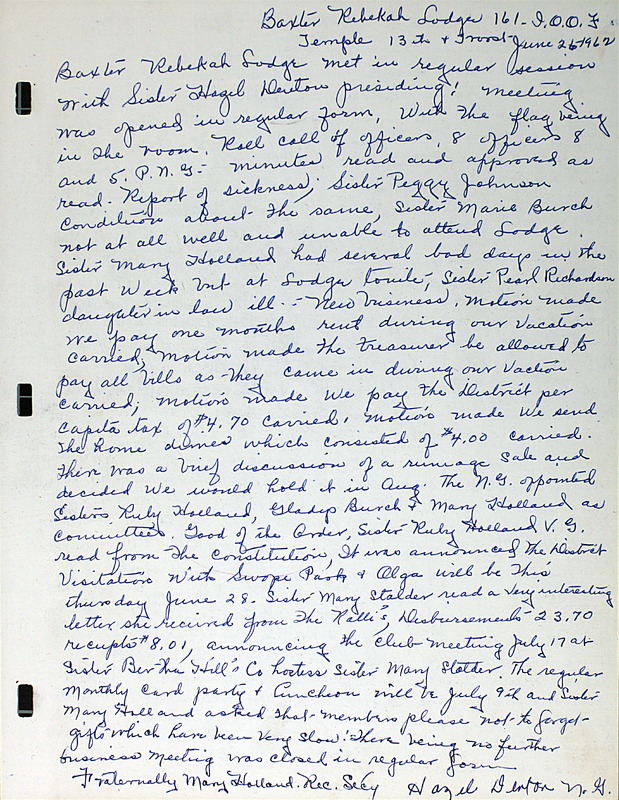 Baxter Rebekah Lodge 161 - I.O.O.F.
Temple 13th & Troost - June 26 1962
Baxter Rebekah Lodge met in regular session
with Sister Hazel Denton presiding! Meeting
was opened in regular form, With the flag being
in the room. Roll call of officers, 8 officers 8
and 5. P.N.G. - minutes read and approved as
read. Report of sickness; Sister Peggy Johnson
condition about the same, Sister Marie Burch
not at all well and unable to attend Lodge.
Sister Mary Holland had several bad days in the
past week but at Lodge tonite; Sister Pearl Richardson
daughter in law ill. - New business. Motion made
we pay one months rent during our vacation
carried; Motion made the treasurer be allowed to
pay all bills as they came in during our vaction
carried; motion made we pay the District per
capita tax of $4.70 carried. motion made we send
the Rome dimes which consisted of $4.00 carried.
There was a brief discussion of a rumage sale and
decided we would hold it in Aug. The N.G. oppointed
Sisters Ruby Holland, Gladys Burch & Mary Holland as
committees. Good of the Order, Sister Ruby Holland V.G.
read from the constitution, It was announced the District
Visitation with Swope Park & Olga will be this
thursday June 28. Sister Mary Stalder read a very interesting
letter she received from the , Disbursements 23.70
recipts $8.01, announcing the club meeting July 17 at
Sister Bertha Hill's Co hostess Sister Mary Stalder. The regular
Monthly card party & Luncheon will be July 9th and Sister
Mary Holland asked that members please not to forget
gifts which have been very slow! There being no further
business meeting was closed in regular form
Fraternally Mary Holland. Rec. Secy Hazel Denton N.G.